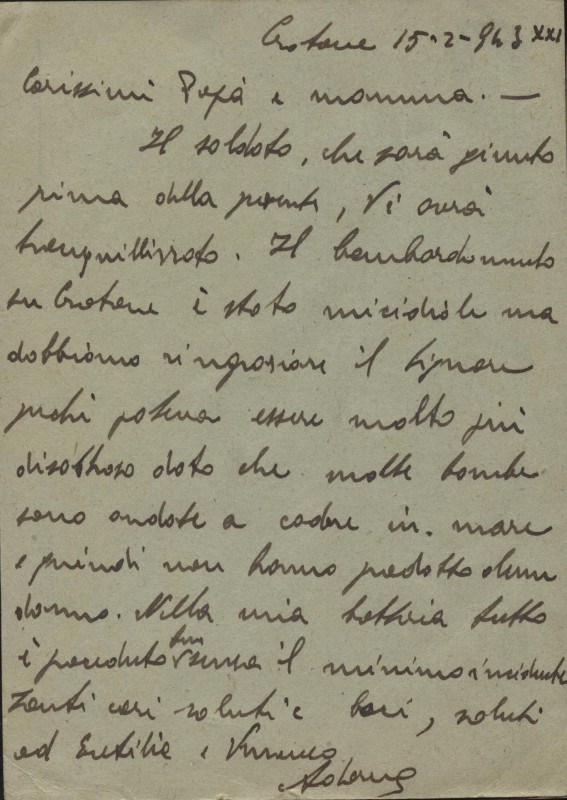 Crotone 15-2-943 XXI
Carissimi Papà e mamma. —
Il soldato, che sarà giunto
prima della presente, Vi avrà
tranquillizzato. Il bombardamento
su Crotone è stato micidiale ma
dobbiamo ringraziare il Signore
perchè poteva essere molto più
disastroso dato che molte bombe
sono andate a cadere in mare
e quindi non hanno prodotto alcun
danno. Nella mia batteria tutto
è proceduto ben senza il minimo incidente
Tanti cari saluti e baci, saluti
ad Ersilia e